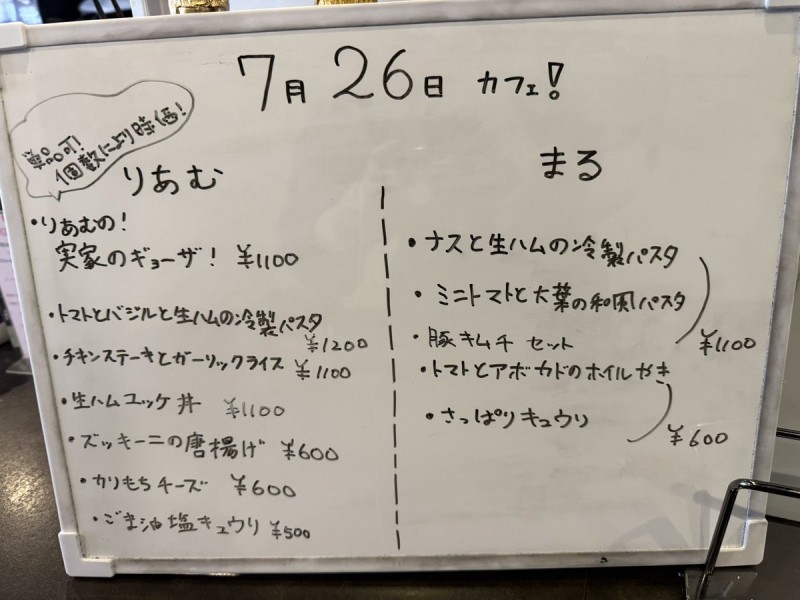 7月 26日 カフェ!
単品可!
個数により時価!
りあむ
・りあむの!
実家のギョーザ! ¥1100
・トマトとバジルと生ハムの冷製パスタ
¥1200
・チキンステーキとガーリックライス ¥1100
・生ハムユッケ丼 ¥1100
・ズッキーニの唐揚げ ¥600
・カリもちチーズ ¥600
・ごま油塩キュウリ ¥500
まる
・ナスと生ハムの冷製パスタ
・ミニトマトと大葉の和風パスタ
・豚キムチ セット
¥1100
・トマトとアボカドのホイルやき
・さっぱりキュウリ
¥600